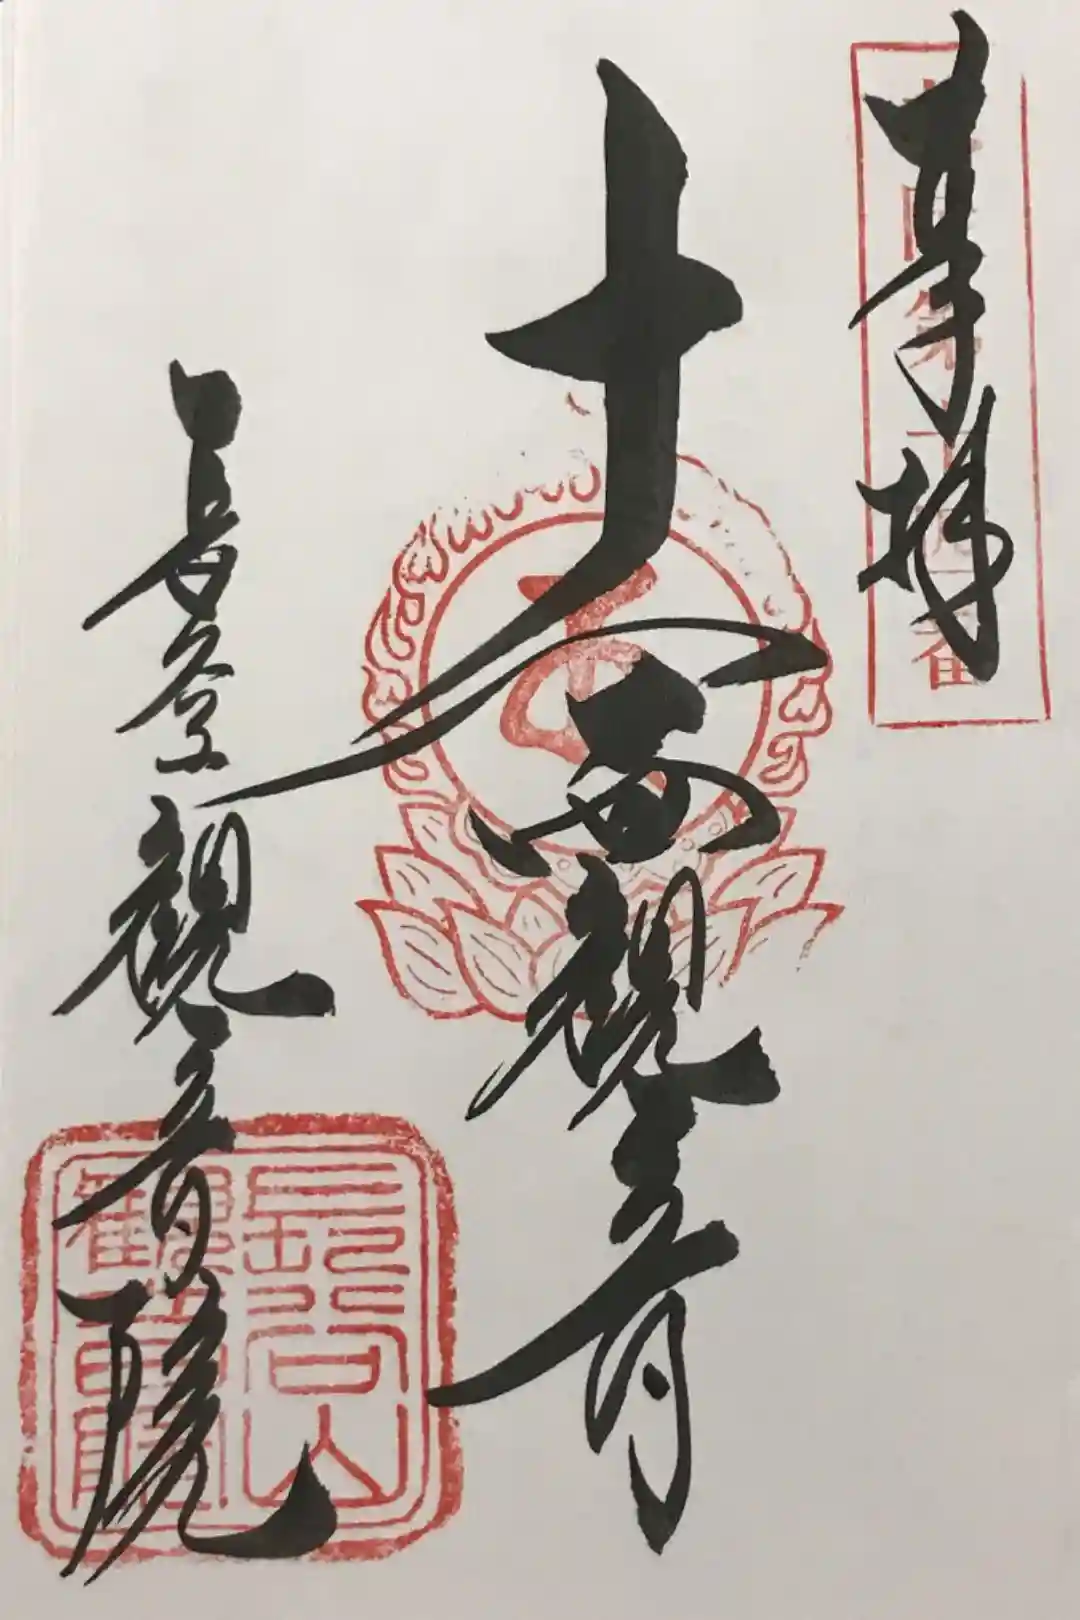 奉拝
十一面観音
長谷観音院
長谷山
観音院